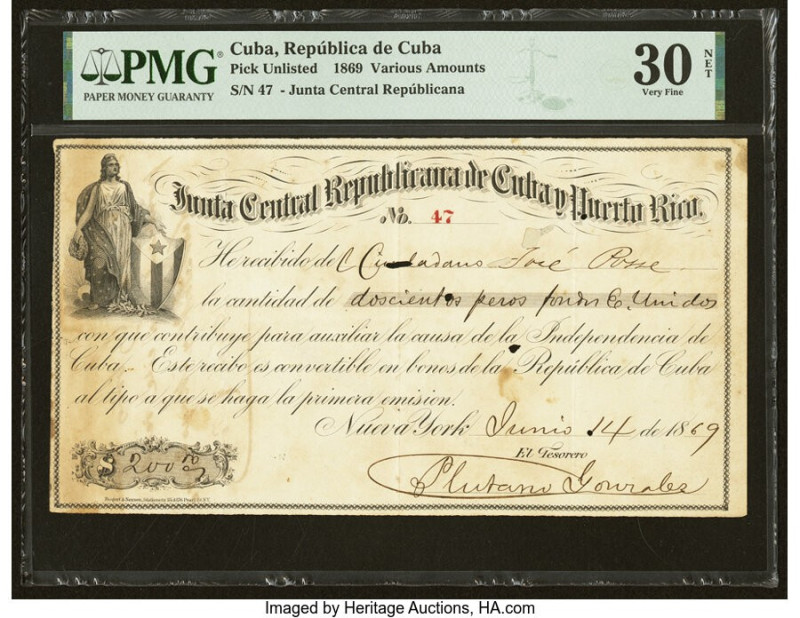 PMG
PAPER MONEY GUARANTY
Cuba, República de Cuba
Pick Unlisted 1869 Various Amounts
S/N 47 - Junta Central Repúblicana
30 NET
Very Fine
Junta Central Republicana de Cuba y Puerto Rico.
No. 47
He recibido del Ciudadano José Posse
la cantidad de doscientos pesos fondos E. Unidos
con que contribuye para auxiliar la causa de la Independencia de
Cuba. Este recibo es convertible en bonos de la República de Cuba
al tipo a que se haga la primera emision.
Nueva York Junio 14 de 1869
El Tesorero
$200
Plutarco Gonzales
Imaged by Heritage Auctions, HA.com